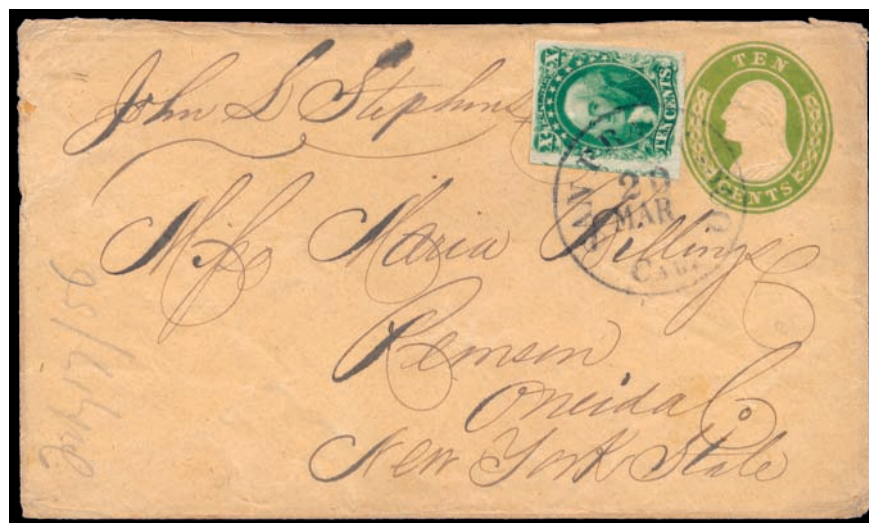 John L Stephens
TEN CENTS
X TEN CENTS
SAN FRANCISCO
29
MAR
CAL
Miss Maria Billings
Remsen
Oneida Co
New York State